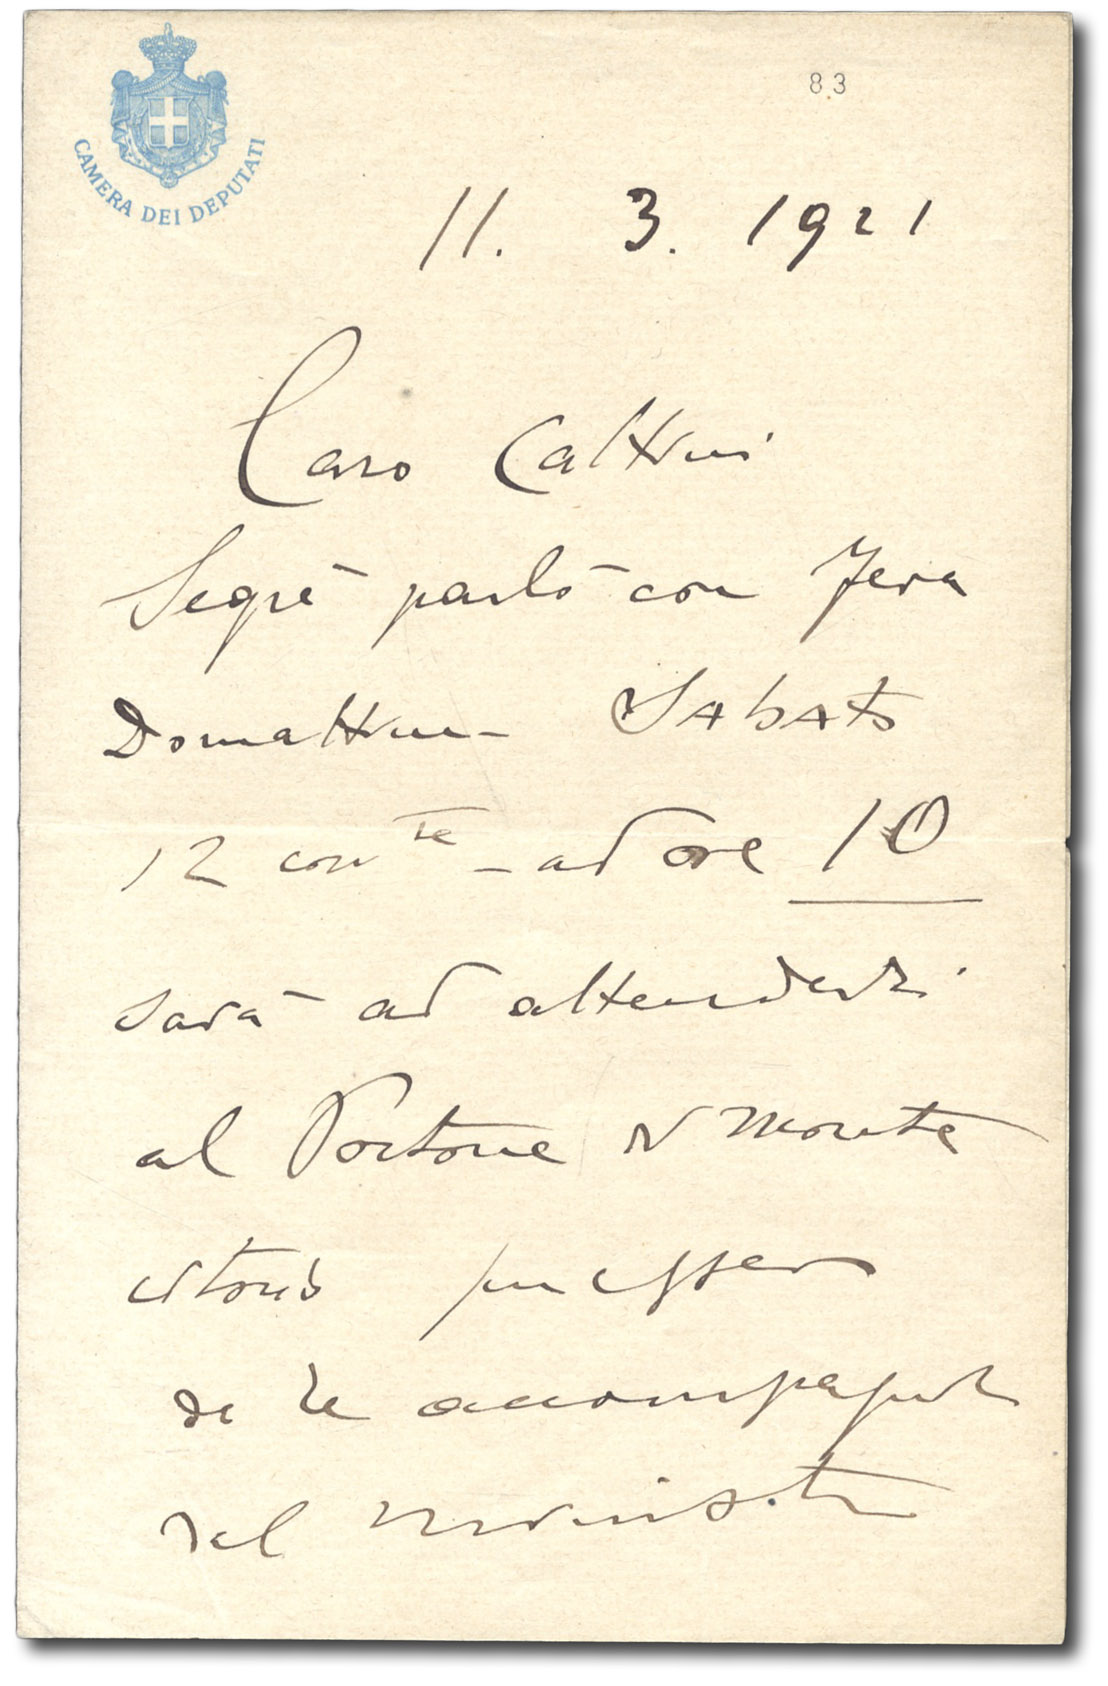 CAMERA DEI DEPUTATI
83
11. 3. 1921
Caro Cattini
Segrè parlò con Fera
Domattina Sabato
12 corr te - ad ore 10
sarà ad attenderti
al Portone di Monte
citorio per essere
da te accompagnato
dal ministro